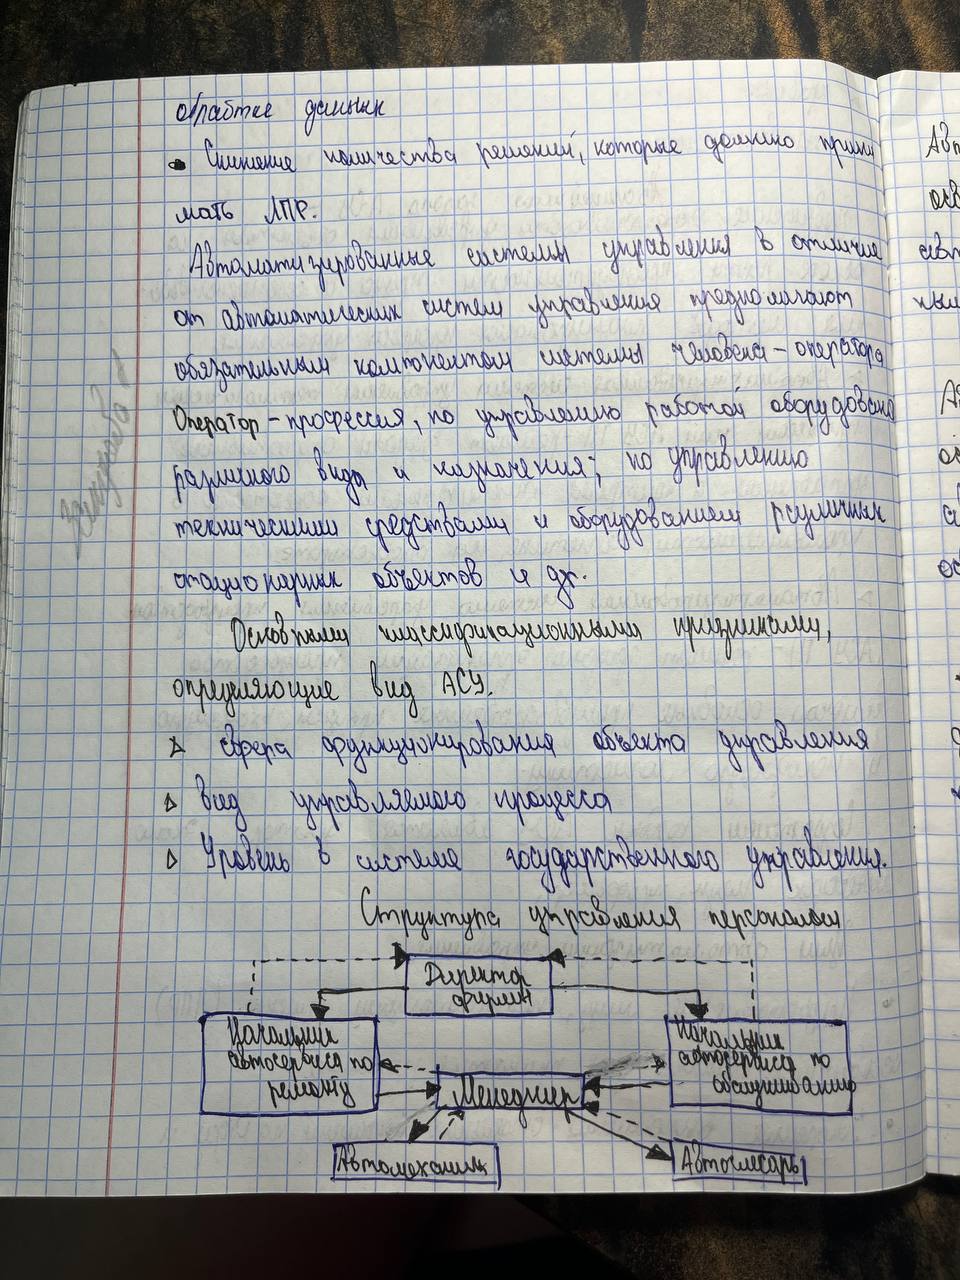 обработке данных
• Снижение количества решений, которые должно прини
мать ЛПР.
Автоматизированные системы управления в отличие
от автоматических систем управления предполагают
обязательным компонентом системы человека-оператора
Оператор - профессия, по управлению работой оборудовани
различного вида и назначения; по управлению
техническими средствами и оборудованием различных
стационарных объектов и др.
Основными классификационными признаками,
определяющие вид АСУ.
▷ сфера функционирования объекта управления
▷ вид управляемого процесса
▷ Уровень в системе государственного управления.
Структура управления персоналом
Директор
фирмы
Начальник
автосервиса по
ремонту
Начальник
автосервиса по
обслуживанию
Менеджер
Автомеханик
Автослесарь